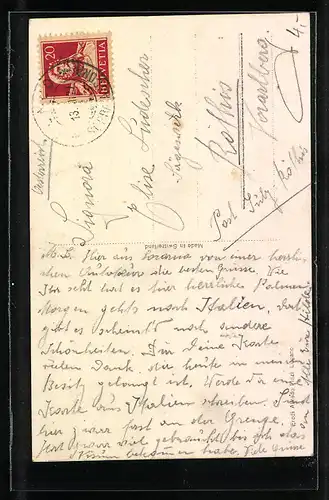 20
HELVETIA
4,-
Österreich
Signora
Elise Lüdescher
Sägewerk
Röthis
Vorarlberg
Post Sulz Röthis
Made in Switzerland
M. L. Hier aus Locarno von einer herrlichen
Autotour die besten Grüsse. Wie
Ihr seht hat es hier herrliche Palmen
Morgen gehts nach Italien, dort
gibt es scheints noch andere
Schönheiten. Für Deine Karte
vielen Dank, die heute in meinen
Besitz gelangt ist, Werde Dir eine
Karte aus Italien schreiben. Sind
hier ja fast an der Grenze.
Hat zwar viel gebraucht bis ich das
bekommen habe. Viele Grüsse
Alle Eure Hilde